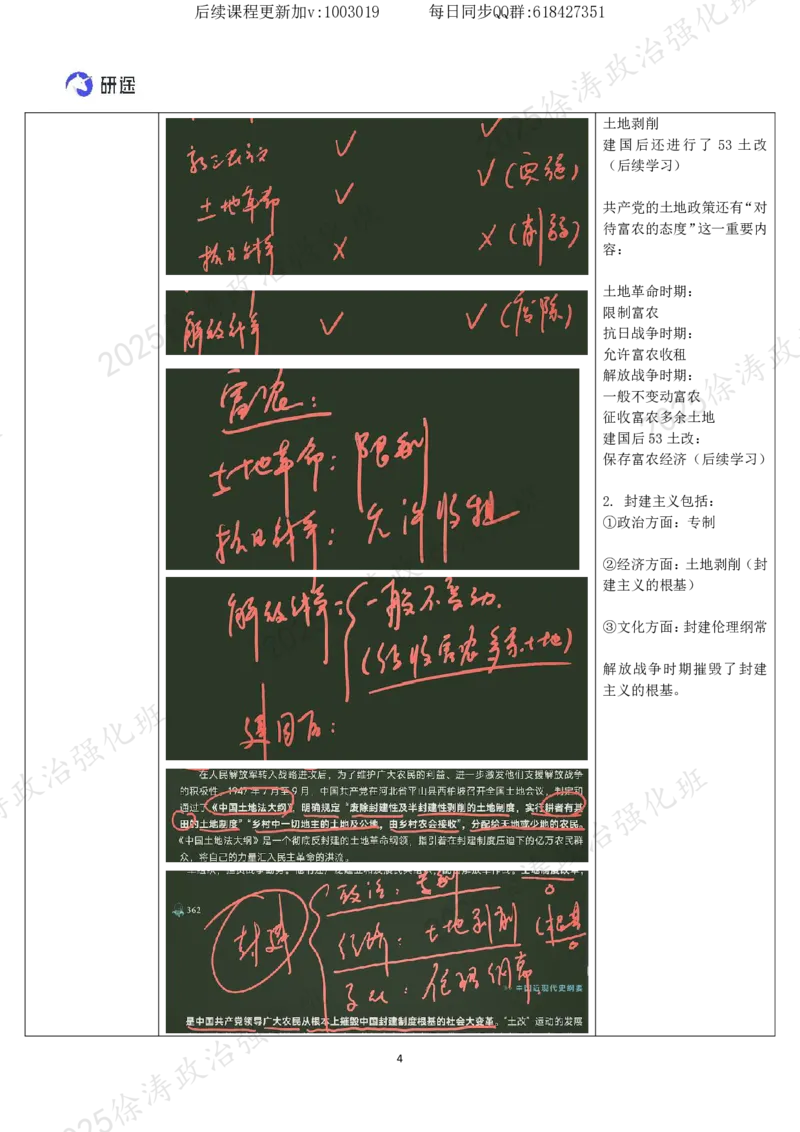 后续课程更新加v:1003019 每日同步QQ群:618427351
研途
新三民主义 ✓ ✓(实施)
土地革命 ✓
抗日战争 × ×(削弱)
解放战争 ✓ ✓(废除)
富农:
土地革命:限制
抗日战争:允许收租
解放战争:一般不变动.
(征收富农多余土地)
建国后:
在人民解放军转入战略进攻后,为了维护广大农民的利益、进一步激发他们支援解放战争
的积极性,1947年7月至9月,中国共产党在河北省平山县西柏坡召开全国土地会议,制定和
通过了《中国土地法大纲》,明确规定“废除封建性及半封建性剥削的土地制度,实行耕者有其
田的土地制度”“乡村中一切地主的土地及公地,由乡村农会接收”,分配给无地或少地的农民。
《中国土地法大纲》是一个彻底反封建的土地革命纲领,指引着在封建制度压迫下的亿万农民群
众,将自己的力量汇入民主革命的洪流。
土地制度改革,
362
封建
政治:专制
经济:土地剥削(根基)
文化:伦理纲常
中国近现代史纲要
是中国共产党领导广大农民从根本上摧毁中国封建制度根基的社会大变革。“土改”运动的发展
土地剥削
建国后还进行了 53 土改
(后续学习)
共产党的土地政策还有“对
待富农的态度”这一重要内
容:
土地革命时期:
限制富农
抗日战争时期:
允许富农收租
解放战争时期:
一般不变动富农
征收富农多余土地
建国后 53 土改:
保存富农经济(后续学习)
2. 封建主义包括:
①政治方面:专制
②经济方面:土地剥削(封
建主义的根基)
③文化方面:封建伦理纲常
解放战争时期摧毁了封建
主义的根基。
4
2025徐涛政治强化班